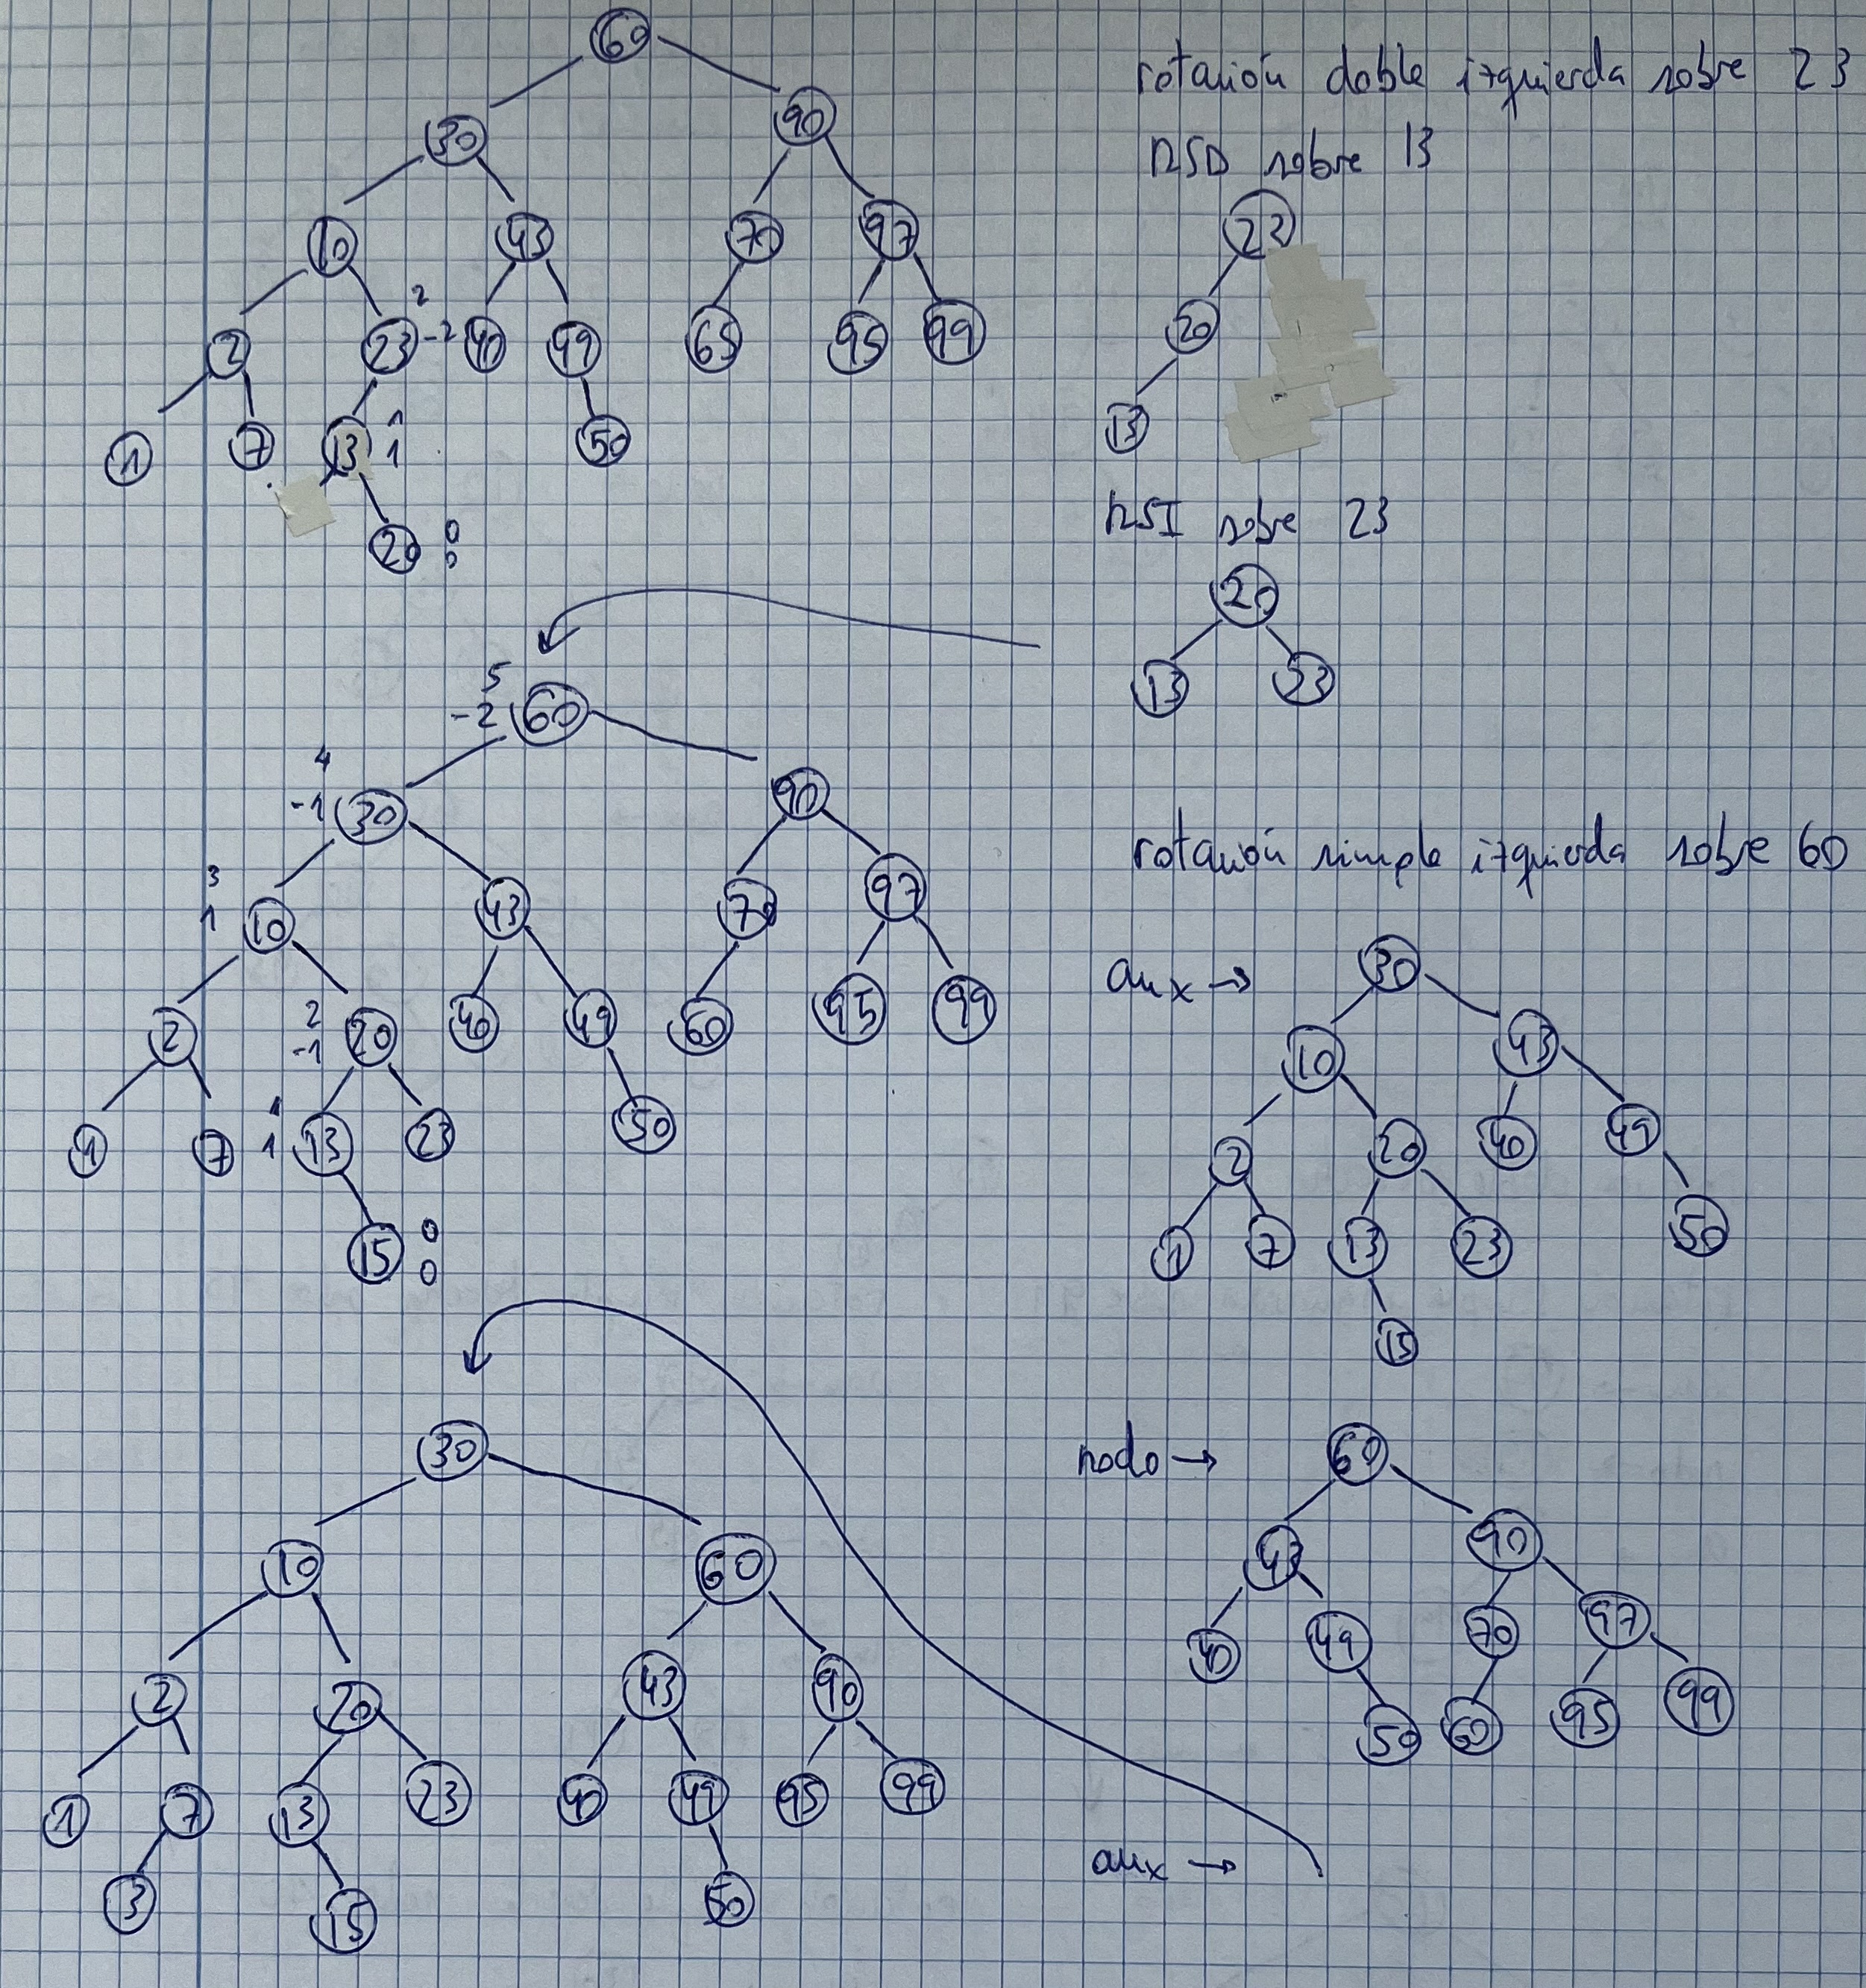 60
30 90
10 43 70 97
2 23 2 -2 40 49 65 95 99
1 7 13 1 1 50
20 0 0
rotación doble izquierda sobre 23
RSD sobre 13
23
20
13
RSI sobre 23
20
13 23
5
-2 60
4
-1 30 90
3
1 10 43 70 97
2 2 -1 20 40 49 60 95 99
1 7 1 1 13 23 50
15 0 0
rotación simple izquierda sobre 60
aux → 30
10 43
2 20 40 49
1 7 13 23 50
15
30
10 60
2 20 43 90
1 7 13 23 40 49 95 99
3 15 50
nodo → 60
43 90
40 49 70 97
50 60 95 99
aux →